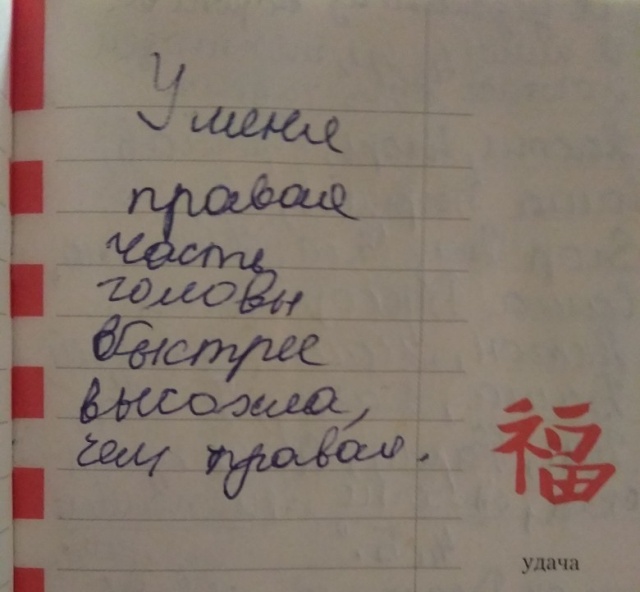 У меня
правая
часть
головы
быстрее
высохла,
чем правая.
福
удача